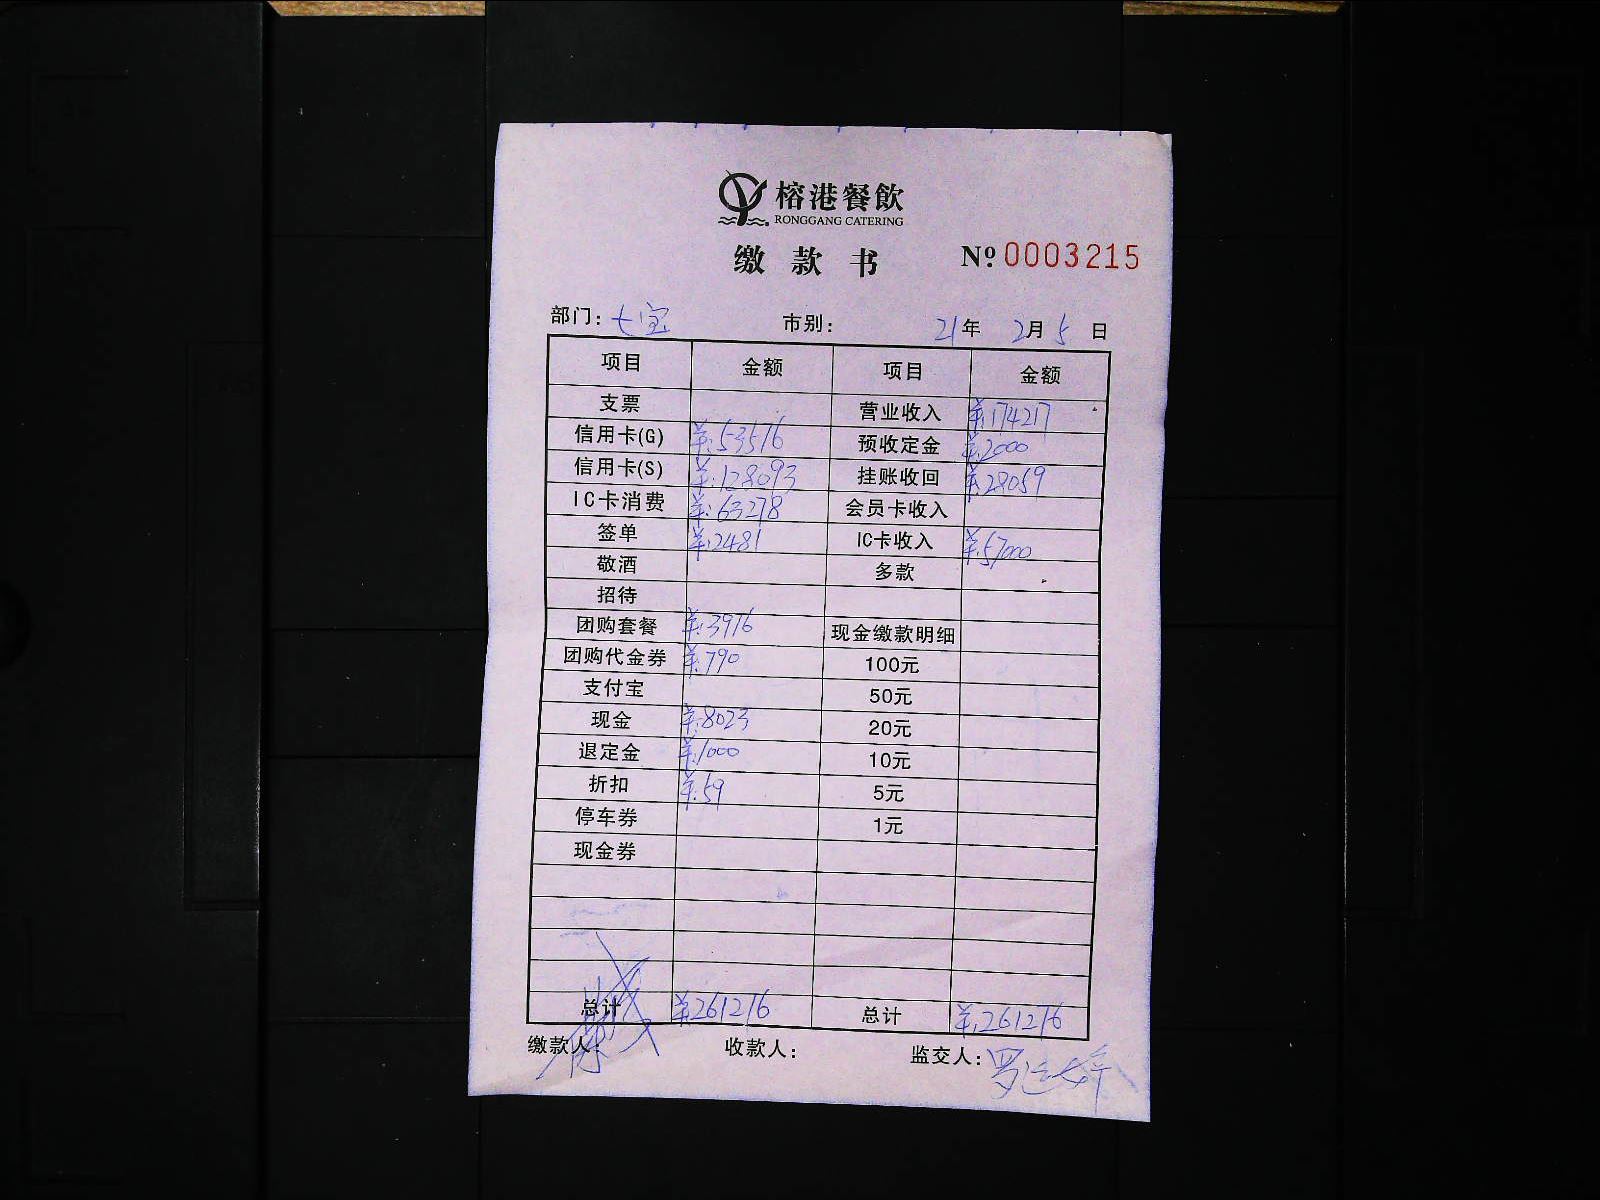 榕港餐飲
RONGGANG CATERING
缴款书 Nº 0003215
部门: 七宝 市别: 21年 2月 5日
项目 金额 项目 金额
支票 营业收入 ¥:174217
信用卡(G) ¥:53576 预收定金 ¥:2000
信用卡(S) ¥:128093 挂账收回 ¥:28059
IC卡消费 ¥:63278 会员卡收入
签单 ¥:2481 IC卡收入 ¥:57000
敬酒 多款
招待
团购套餐 ¥:3976 现金缴款明细
团购代金券 ¥:790 100元
支付宝 50元
现金 ¥:8023 20元
退定金 ¥:1000 10元
折扣 ¥:59 5元
停车券 1元
现金券
总计 ¥:261276 总计 ¥:261276
缴款人: 收款人: 监交人: